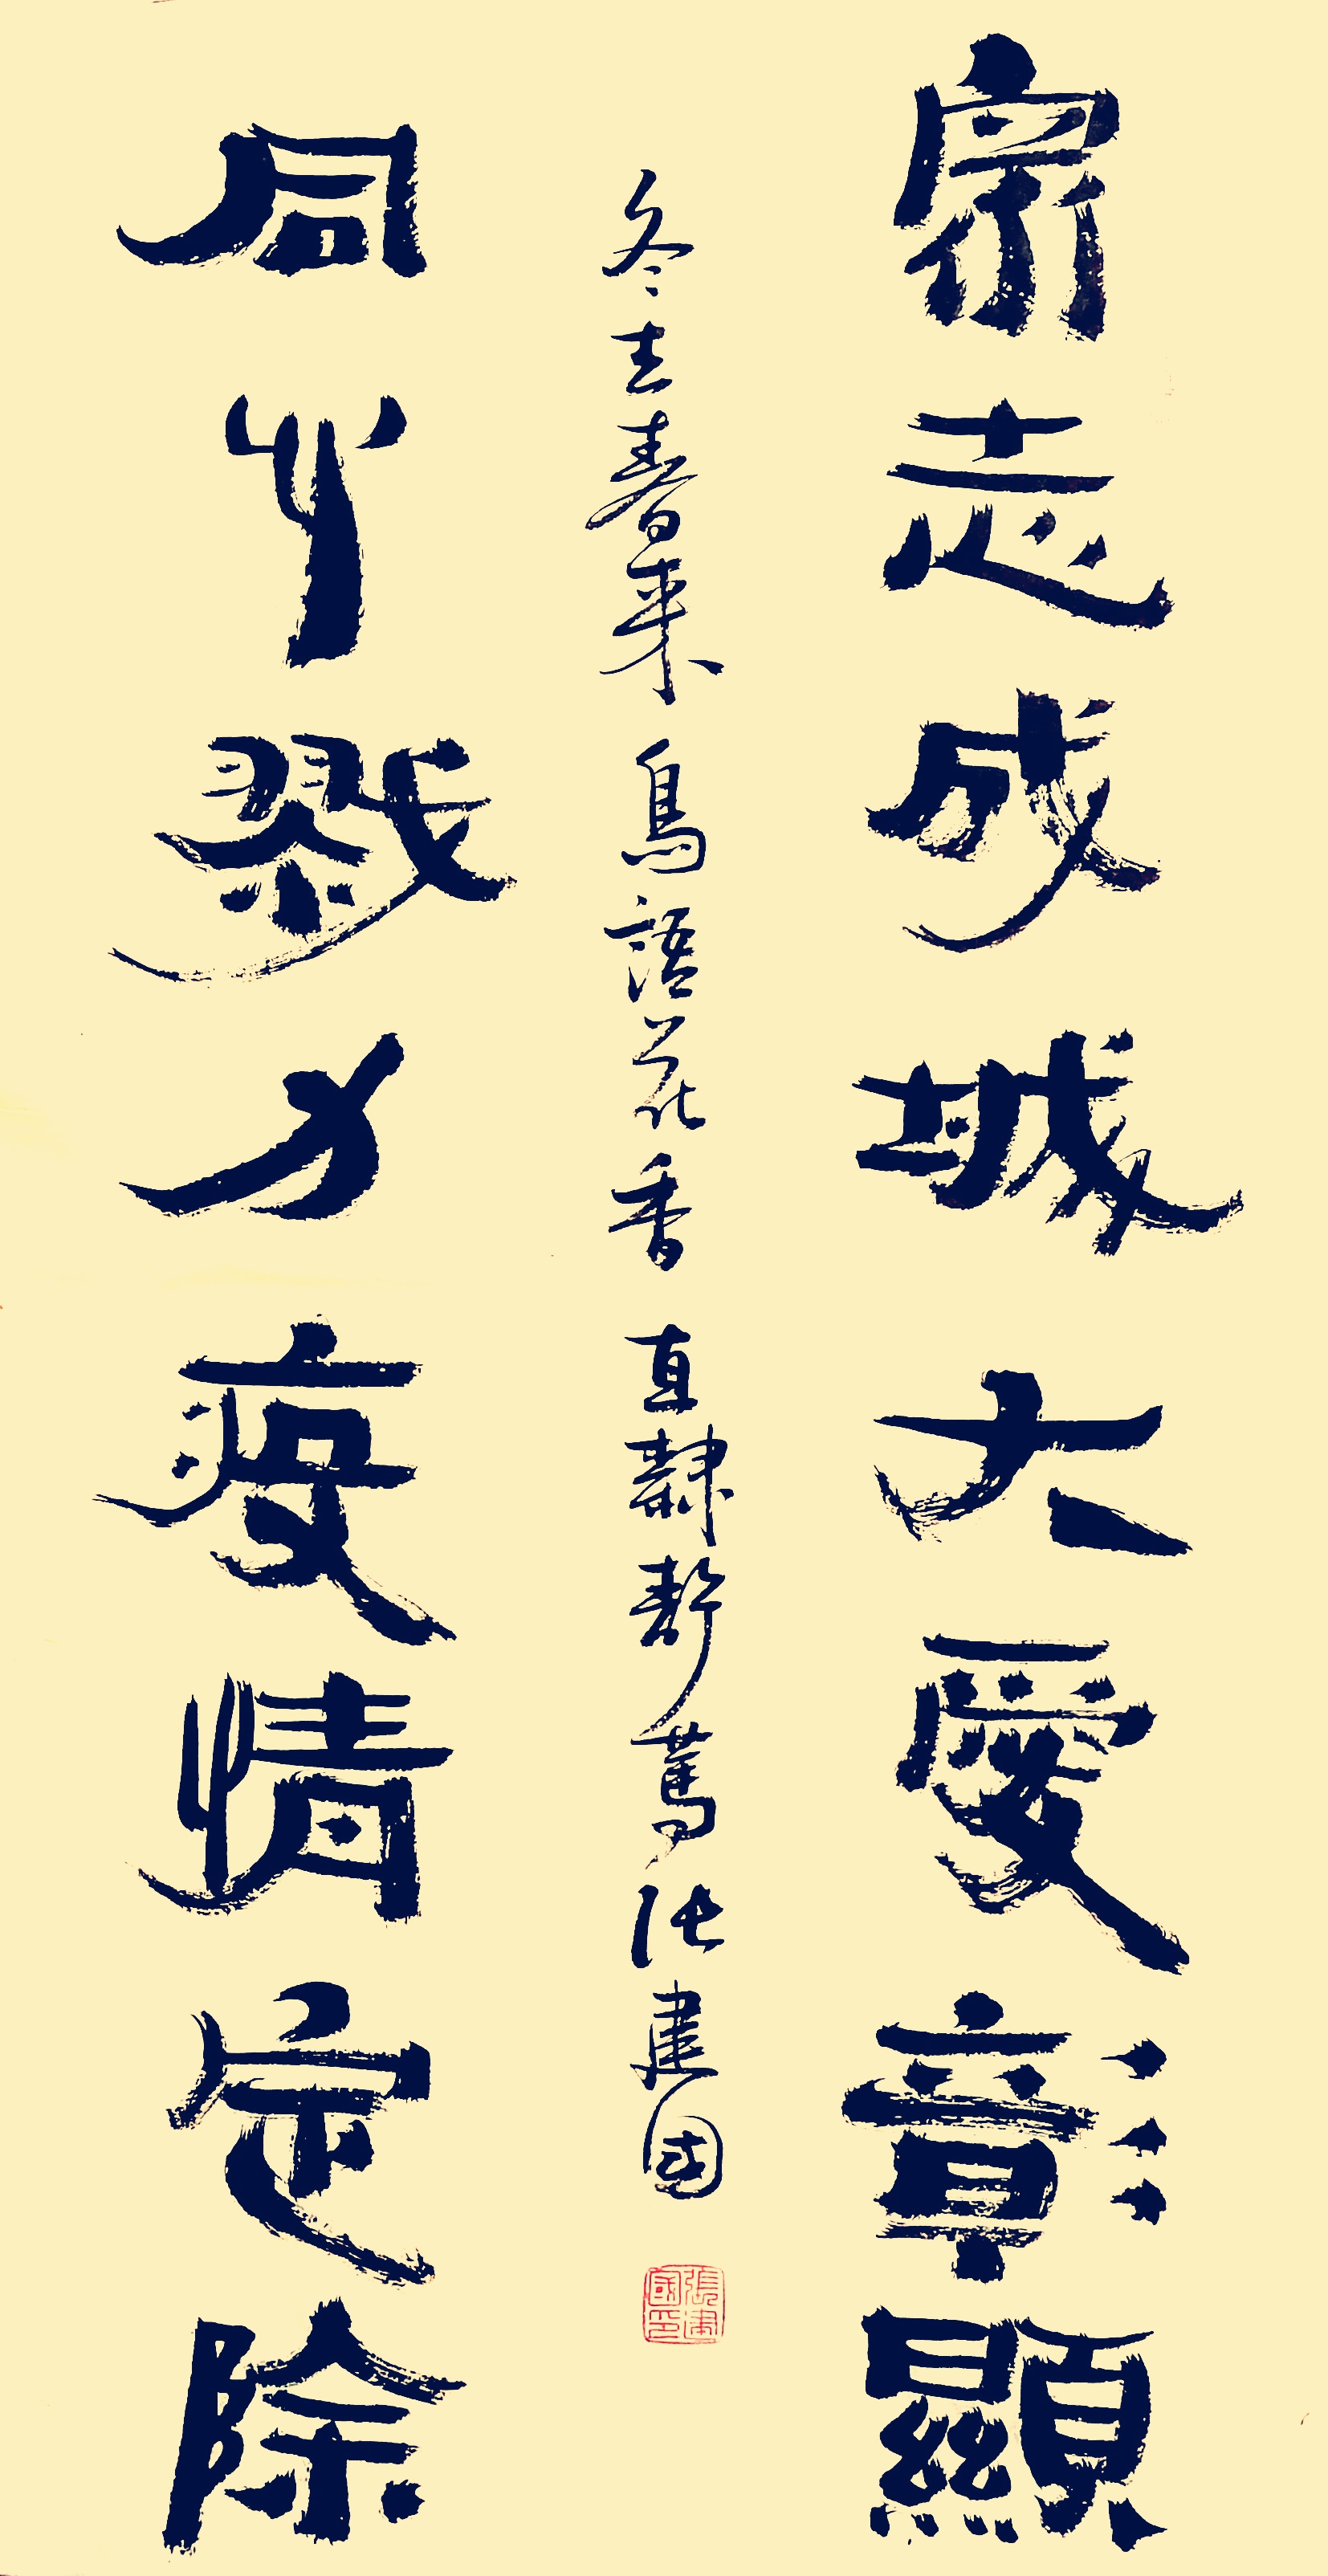 衆志成城大愛彰顯
冬去春来鳥語花香直隸静萬张建國
同心戮力疫情定除
張建國印